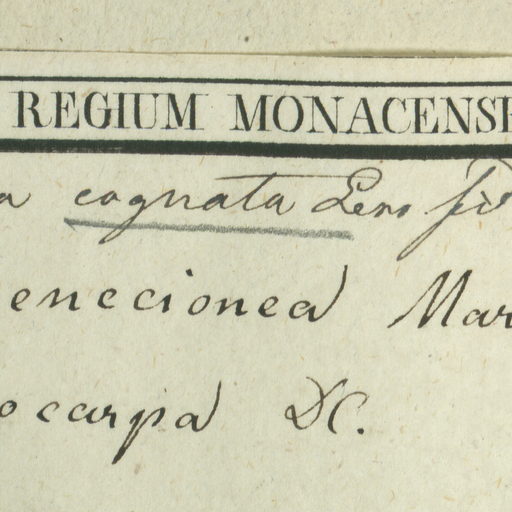 REGIUM MONACENSE
a cognata Less
enecionea Mar
ocarpa DC.